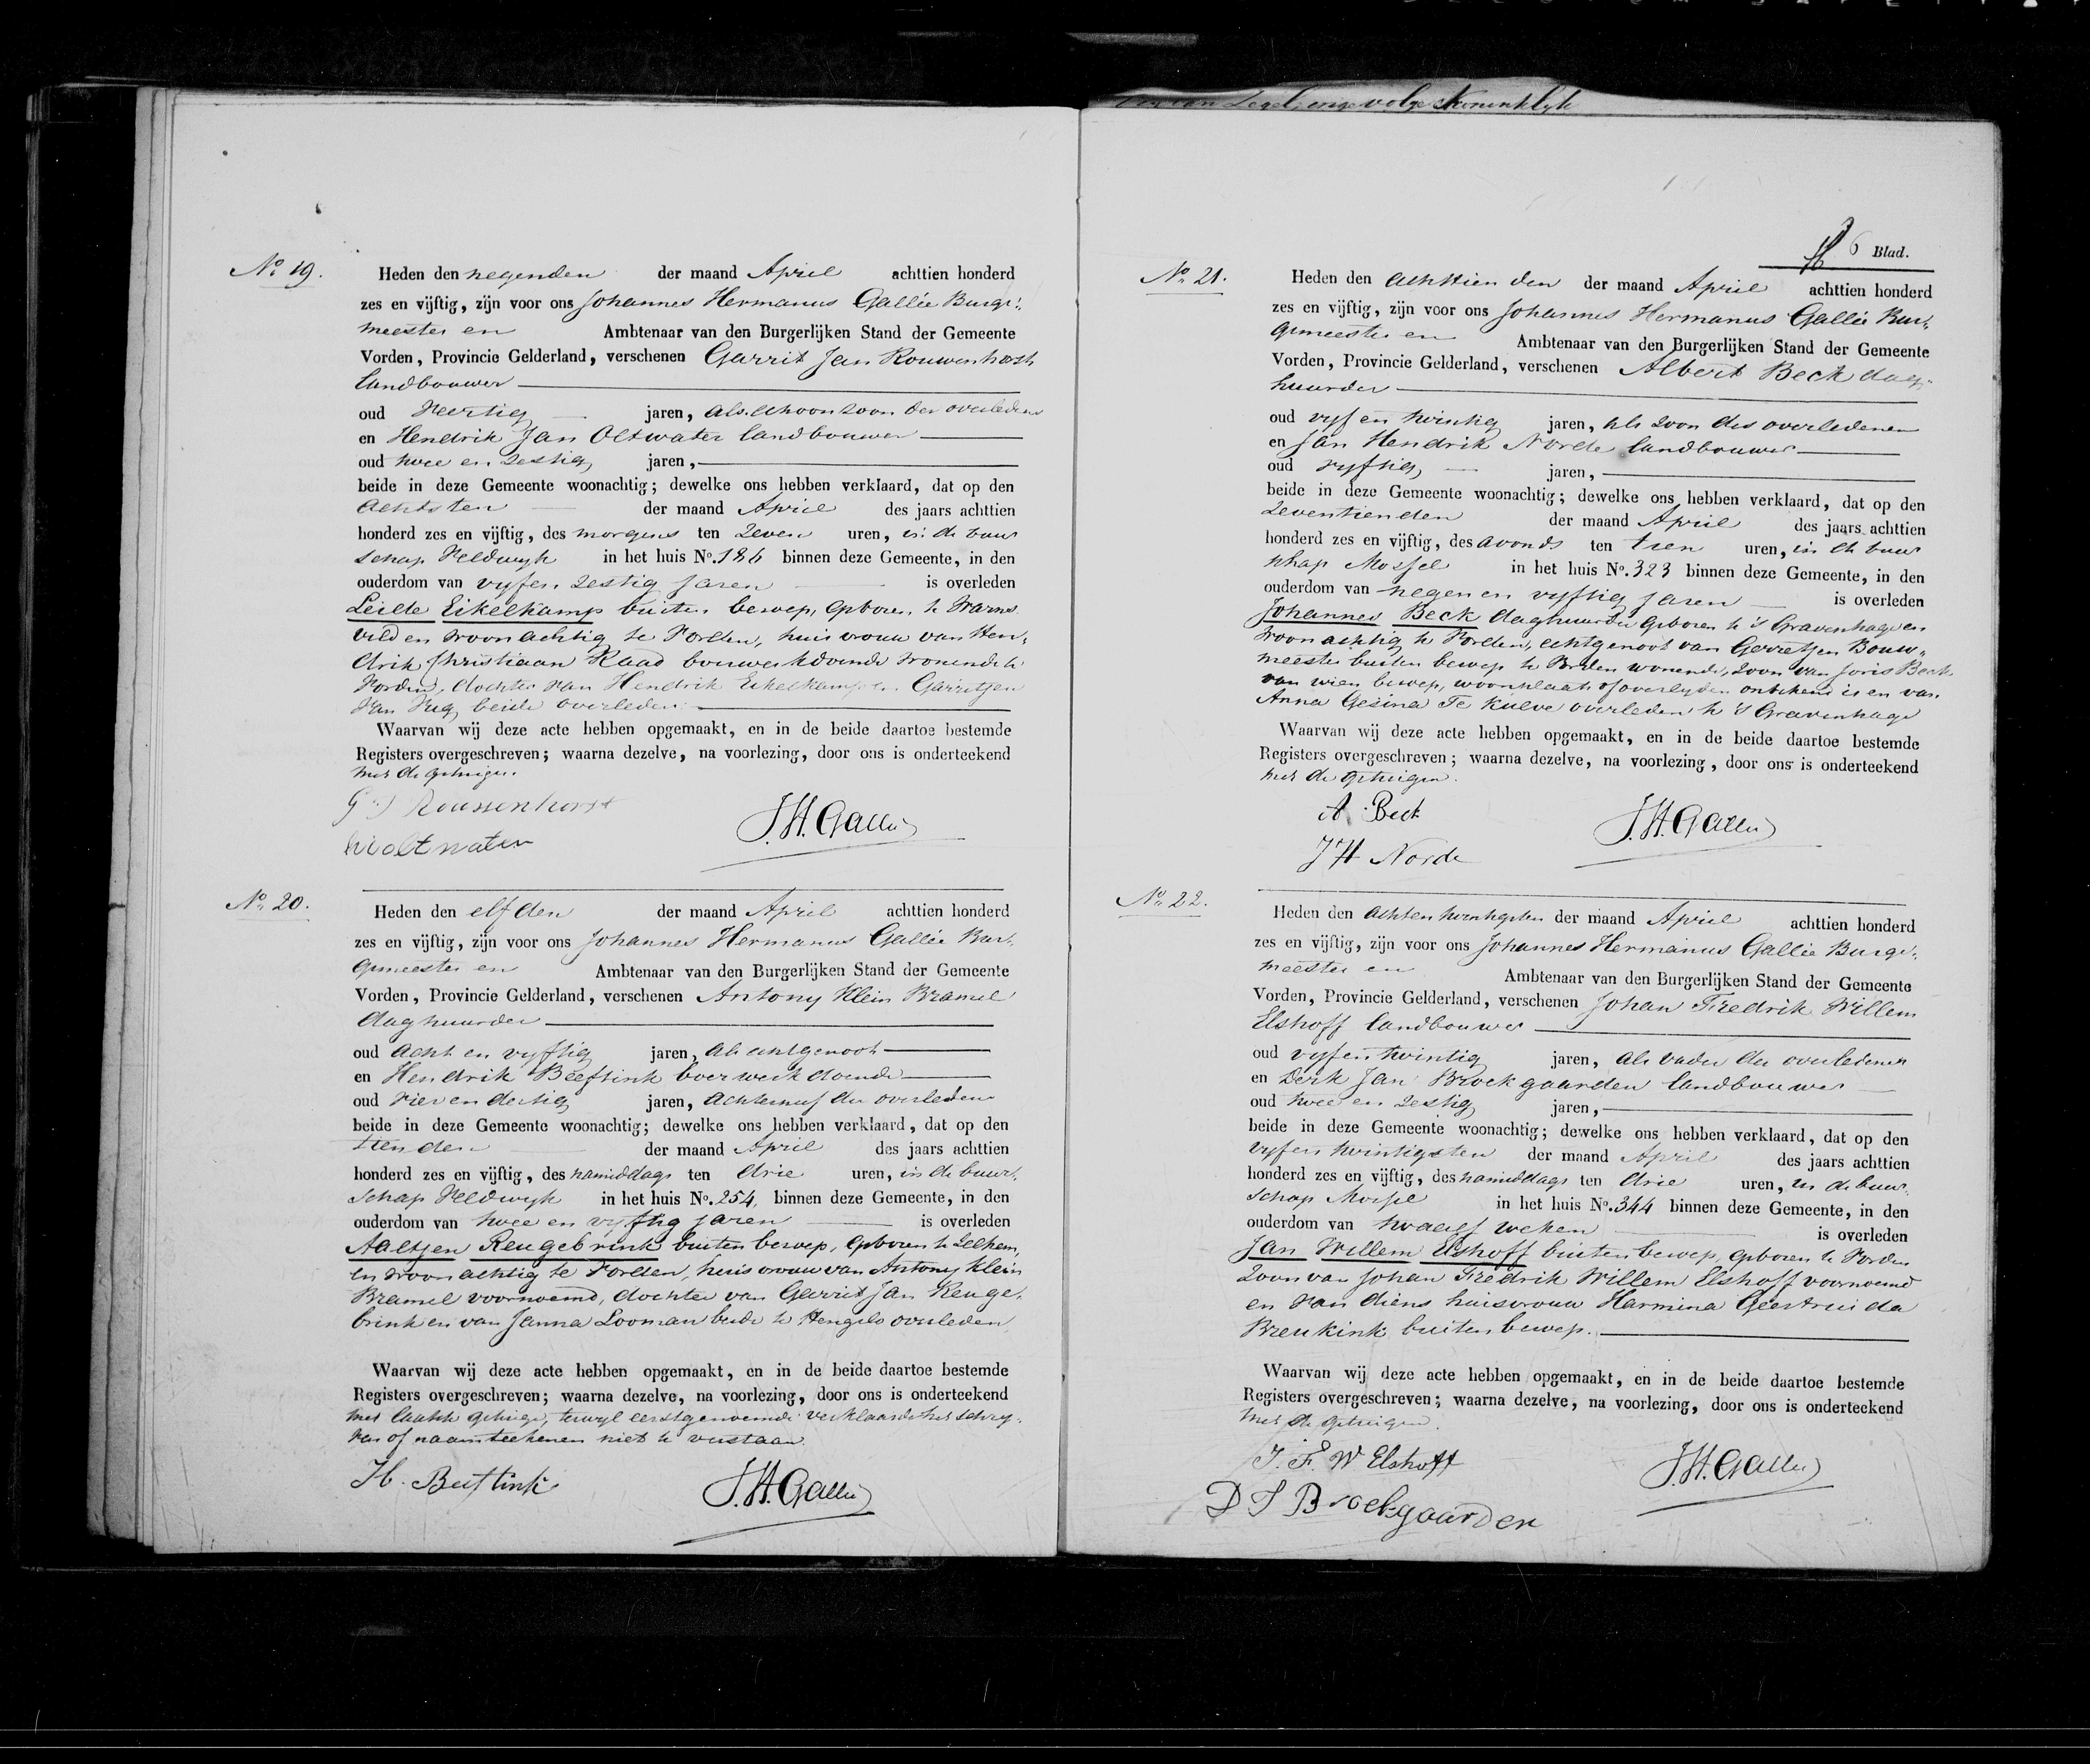 No. 19.
Heden den negenden der maand April achttien honderd
zes en vijftig, zijn voor ons Johannes Hermanus Gallée Burge-
meester en Ambtenaar van den Burgerlijken Stand der Gemeente
Vorden, Provincie Gelderland, verschenen Garrit Jan Rouwenhorst
landbouwer
oud veertig jaren, als schoonzoon der overledene
en Hendrik Jan Oltwater landbouwer
oud twee en zestig jaren,
beide in deze Gemeente woonachtig; dewelke ons hebben verklaard, dat op den
achtsten der maand April des jaars achttien
honderd zes en vijftig, des morgens ten zeven uren, in de buur
schap Veldwyk in het huis No. 186 binnen deze Gemeente, in den
ouderdom van vyf en zestig jaren is overleden
Leide Eikelkamp buiten beroep, geboren te Warns
veld en woonachtig te Vorden, huisvrouw van Hen-
drik Christiaan Raad bouwerkdoende wonende te
Vorden, dochter van Hendrik Eikelkamp en Garritjen
van beide overleden.
Waarvan wij deze acte hebben opgemaakt, en in de beide daartoe bestemde
Registers overgeschreven; waarna dezelve, na voorlezing, door ons is onderteekend
met de getuigen.
G J Roussenhorst
J.H. Gallée
hioltwater
No. 20.
Heden den elfden der maand April achttien honderd
zes en vijftig, zijn voor ons Johannes Hermanus Gallée Bur-
gemeester en Ambtenaar van den Burgerlijken Stand der Gemeente
Vorden, Provincie Gelderland, verschenen Antony Klein Bramel
daghuurder
oud acht en vyftig jaren, als echtgenoot
en Hendrik Beeftink boerwerk doende
oud vier en dertig jaren, achterneef der overledene
beide in deze Gemeente woonachtig; dewelke ons hebben verklaard, dat op den
tienden der maand April des jaars achttien
honderd zes en vijftig, des namiddags ten drie uren, in de buur-
schap Veldwyk in het huis No. 254, binnen deze Gemeente, in den
ouderdom van twee en vyftig jaren is overleden
Aaltjen Reugebrink buiten beroep, geboren te Zelhem,
en woonachtig te Vorden, huisvrouw van Antony Klein
Bramel voornoemd, dochter van Garrit Jan Reuge-
brink en van Janna Looman beide te Hengelo overleden
Waarvan wij deze acte hebben opgemaakt, en in de beide daartoe bestemde
Registers overgeschreven; waarna dezelve, na voorlezing, door ons is onderteekend
met laatste getuige, terwyl eerstgenoemde verklaarde het schry-
ven of naamteekenen niet te verstaan.
H. Beeftink
J.H. Gallée
6 Blad.
No. 21.
Heden den achttienden der maand April achttien honderd
zes en vijftig, zijn voor ons Johannes Hermanus Gallée Bur-
gemeester en Ambtenaar van den Burgerlijken Stand der Gemeente
Vorden, Provincie Gelderland, verschenen Albert Beck dag-
huurder
oud vyf en twintig jaren, als zoon des overledenen
en Jan Hendrik Norde landbouwer
oud vyftig jaren,
beide in deze Gemeente woonachtig; dewelke ons hebben verklaard, dat op den
zeventienden der maand April des jaars achttien
honderd zes en vijftig, des avonds ten tien uren, in de buur
schap Mossel in het huis No. 323 binnen deze Gemeente, in den
ouderdom van negen en vyftig jaren is overleden
Johannes Beck daghuurder geboren te 's Gravenhage en
woonachtig te Vorden, echtgenoot van Gerretjen Bouw-
meester buiten beroep te Vorden wonende, zoon van Joris Beck
van wien beroep, woonplaats of overlyden onbekend is en van
Anna Gesina Te Kulve overleden te 's Gravenhage
Waarvan wij deze acte hebben opgemaakt, en in de beide daartoe bestemde
Registers overgeschreven; waarna dezelve, na voorlezing, door ons is onderteekend
met de getuigen.
A. Beck
J.H. Gallée
J H Norde
No. 22.
Heden den achtentwintigsten der maand April achttien honderd
zes en vijftig, zijn voor ons Johannes Hermanus Gallée Burge-
meester en Ambtenaar van den Burgerlijken Stand der Gemeente
Vorden, Provincie Gelderland, verschenen Johan Fredrik Willem
Elshoff landbouwer
oud vyf en twintig jaren, als vader des overledenen
en Derk Jan Broekgaarden landbouwer
oud twee en zestig jaren,
beide in deze Gemeente woonachtig; dewelke ons hebben verklaard, dat op den
vyfentwintigsten der maand April des jaars achttien
honderd zes en vijftig, des namiddags ten drie uren, in de buur-
schap Mossel in het huis No. 344 binnen deze Gemeente, in den
ouderdom van twaalf weken is overleden
Jan Willem Elshoff buiten beroep, geboren te Vorden
zoon van Johan Fredrik Willem Elshoff voornoemd
en van diens huisvrouw Harmina Geertruida
Breukink buiten beroep.
Waarvan wij deze acte hebben opgemaakt, en in de beide daartoe bestemde
Registers overgeschreven; waarna dezelve, na voorlezing, door ons is onderteekend
met de getuigen.
J. F. W Elshoff
J.H. Gallée
D J Broekgaarden